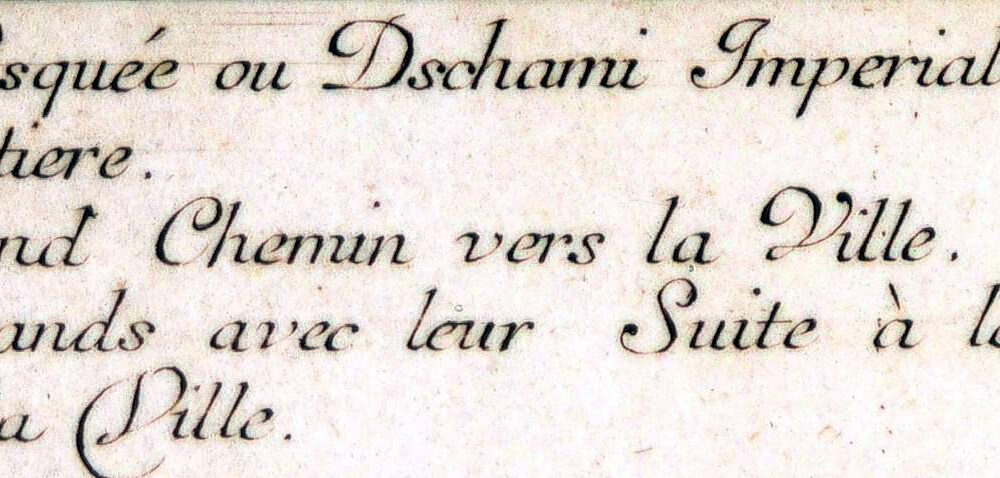 squée ou Dschami Imperial
tiere.
nd Chemin vers la Ville.
ands avec leur Suite à l
a Ville.